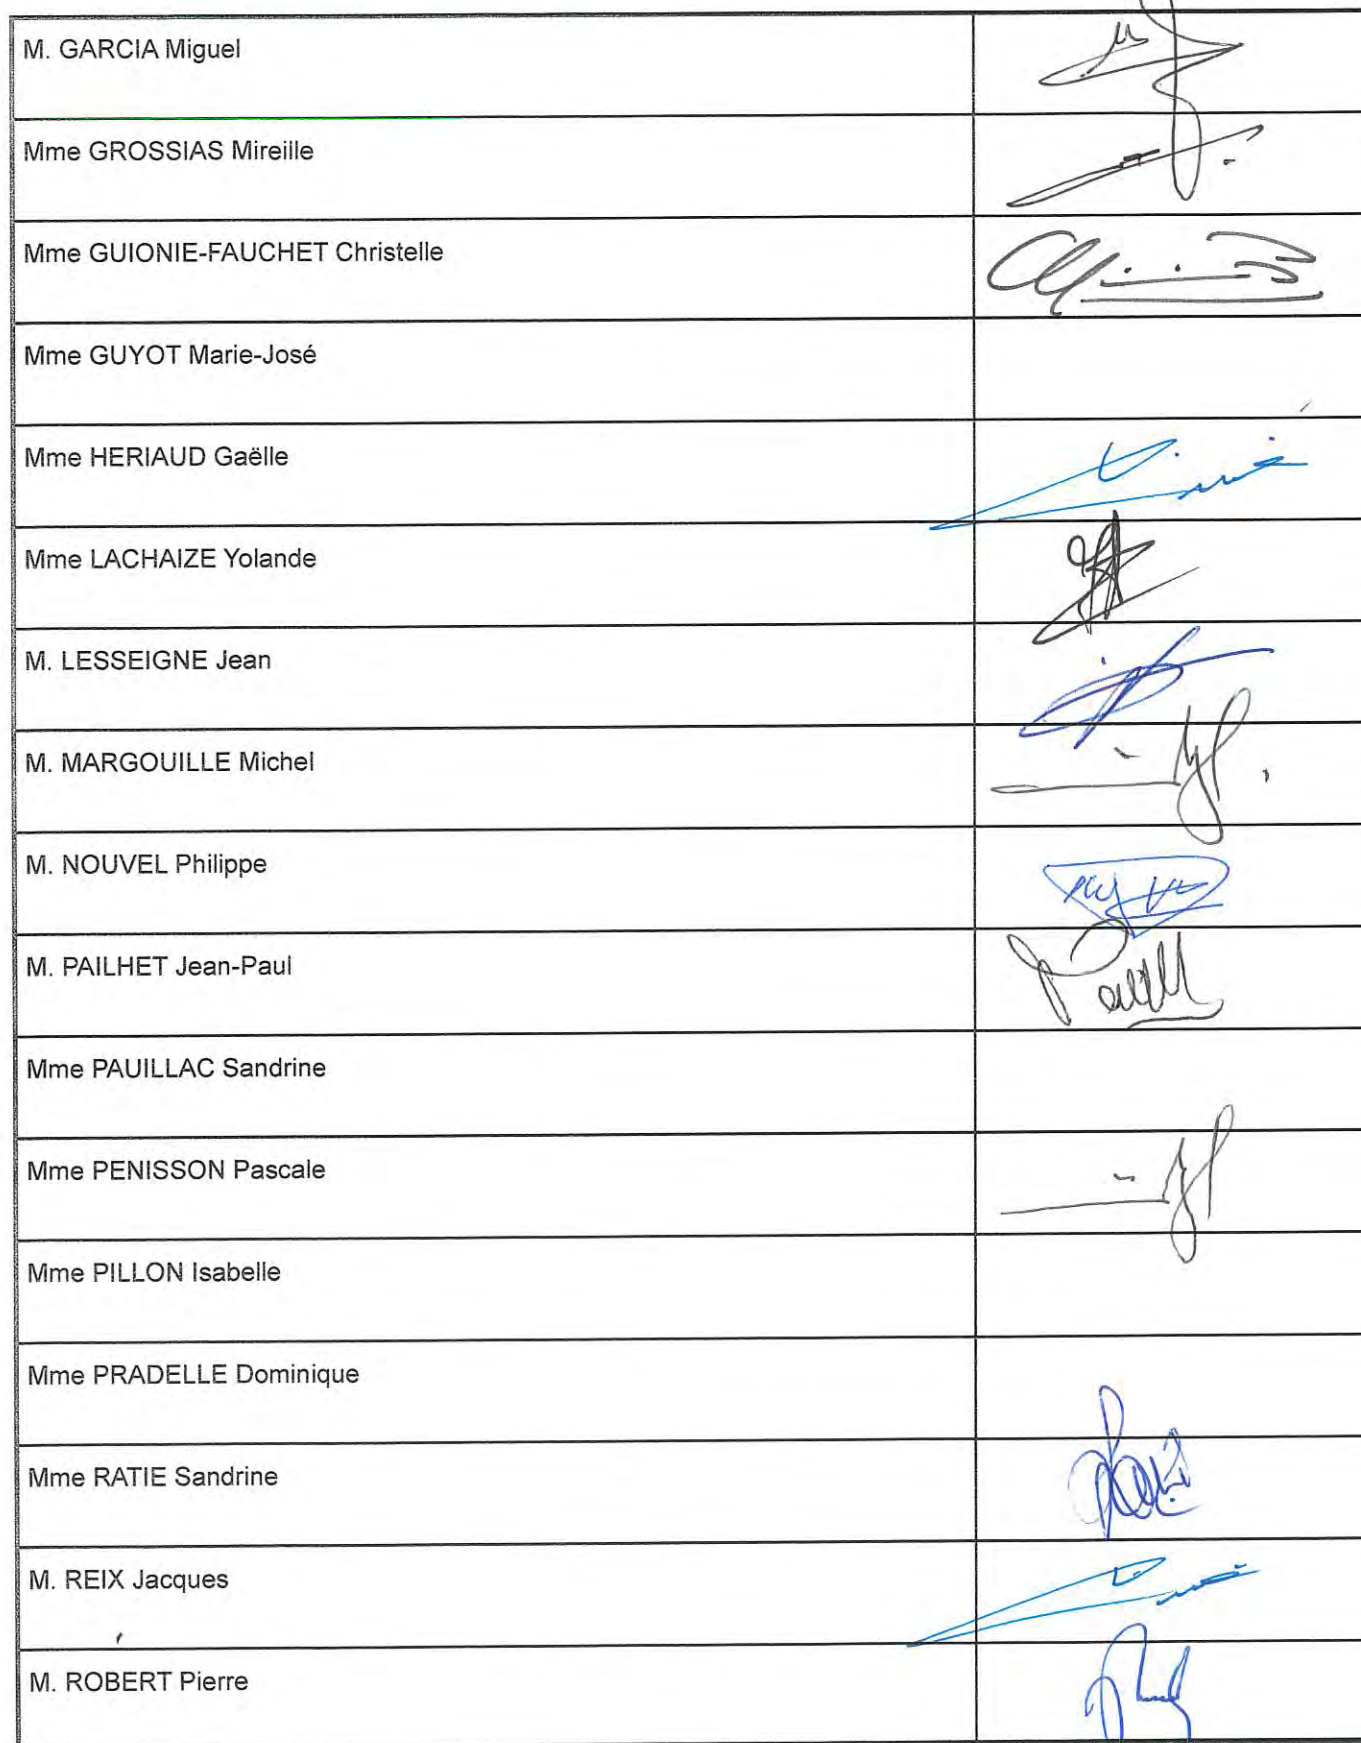 M. GARCIA Miguel
Mme GROSSIAS Mireille
Mme GUIONIE-FAUCHET Christelle
Mme GUYOT Marie-José
Mme HERIAUD Gaëlle
Mme LACHAIZE Yolande
M. LESSEIGNE Jean
M. MARGOUILLE Michel
M. NOUVEL Philippe
M. PAILHET Jean-Paul
Mme PAUILLAC Sandrine
Mme PENISSON Pascale
Mme PILLON Isabelle
Mme PRADELLE Dominique
Mme RATIE Sandrine
M. REIX Jacques
M. ROBERT Pierre